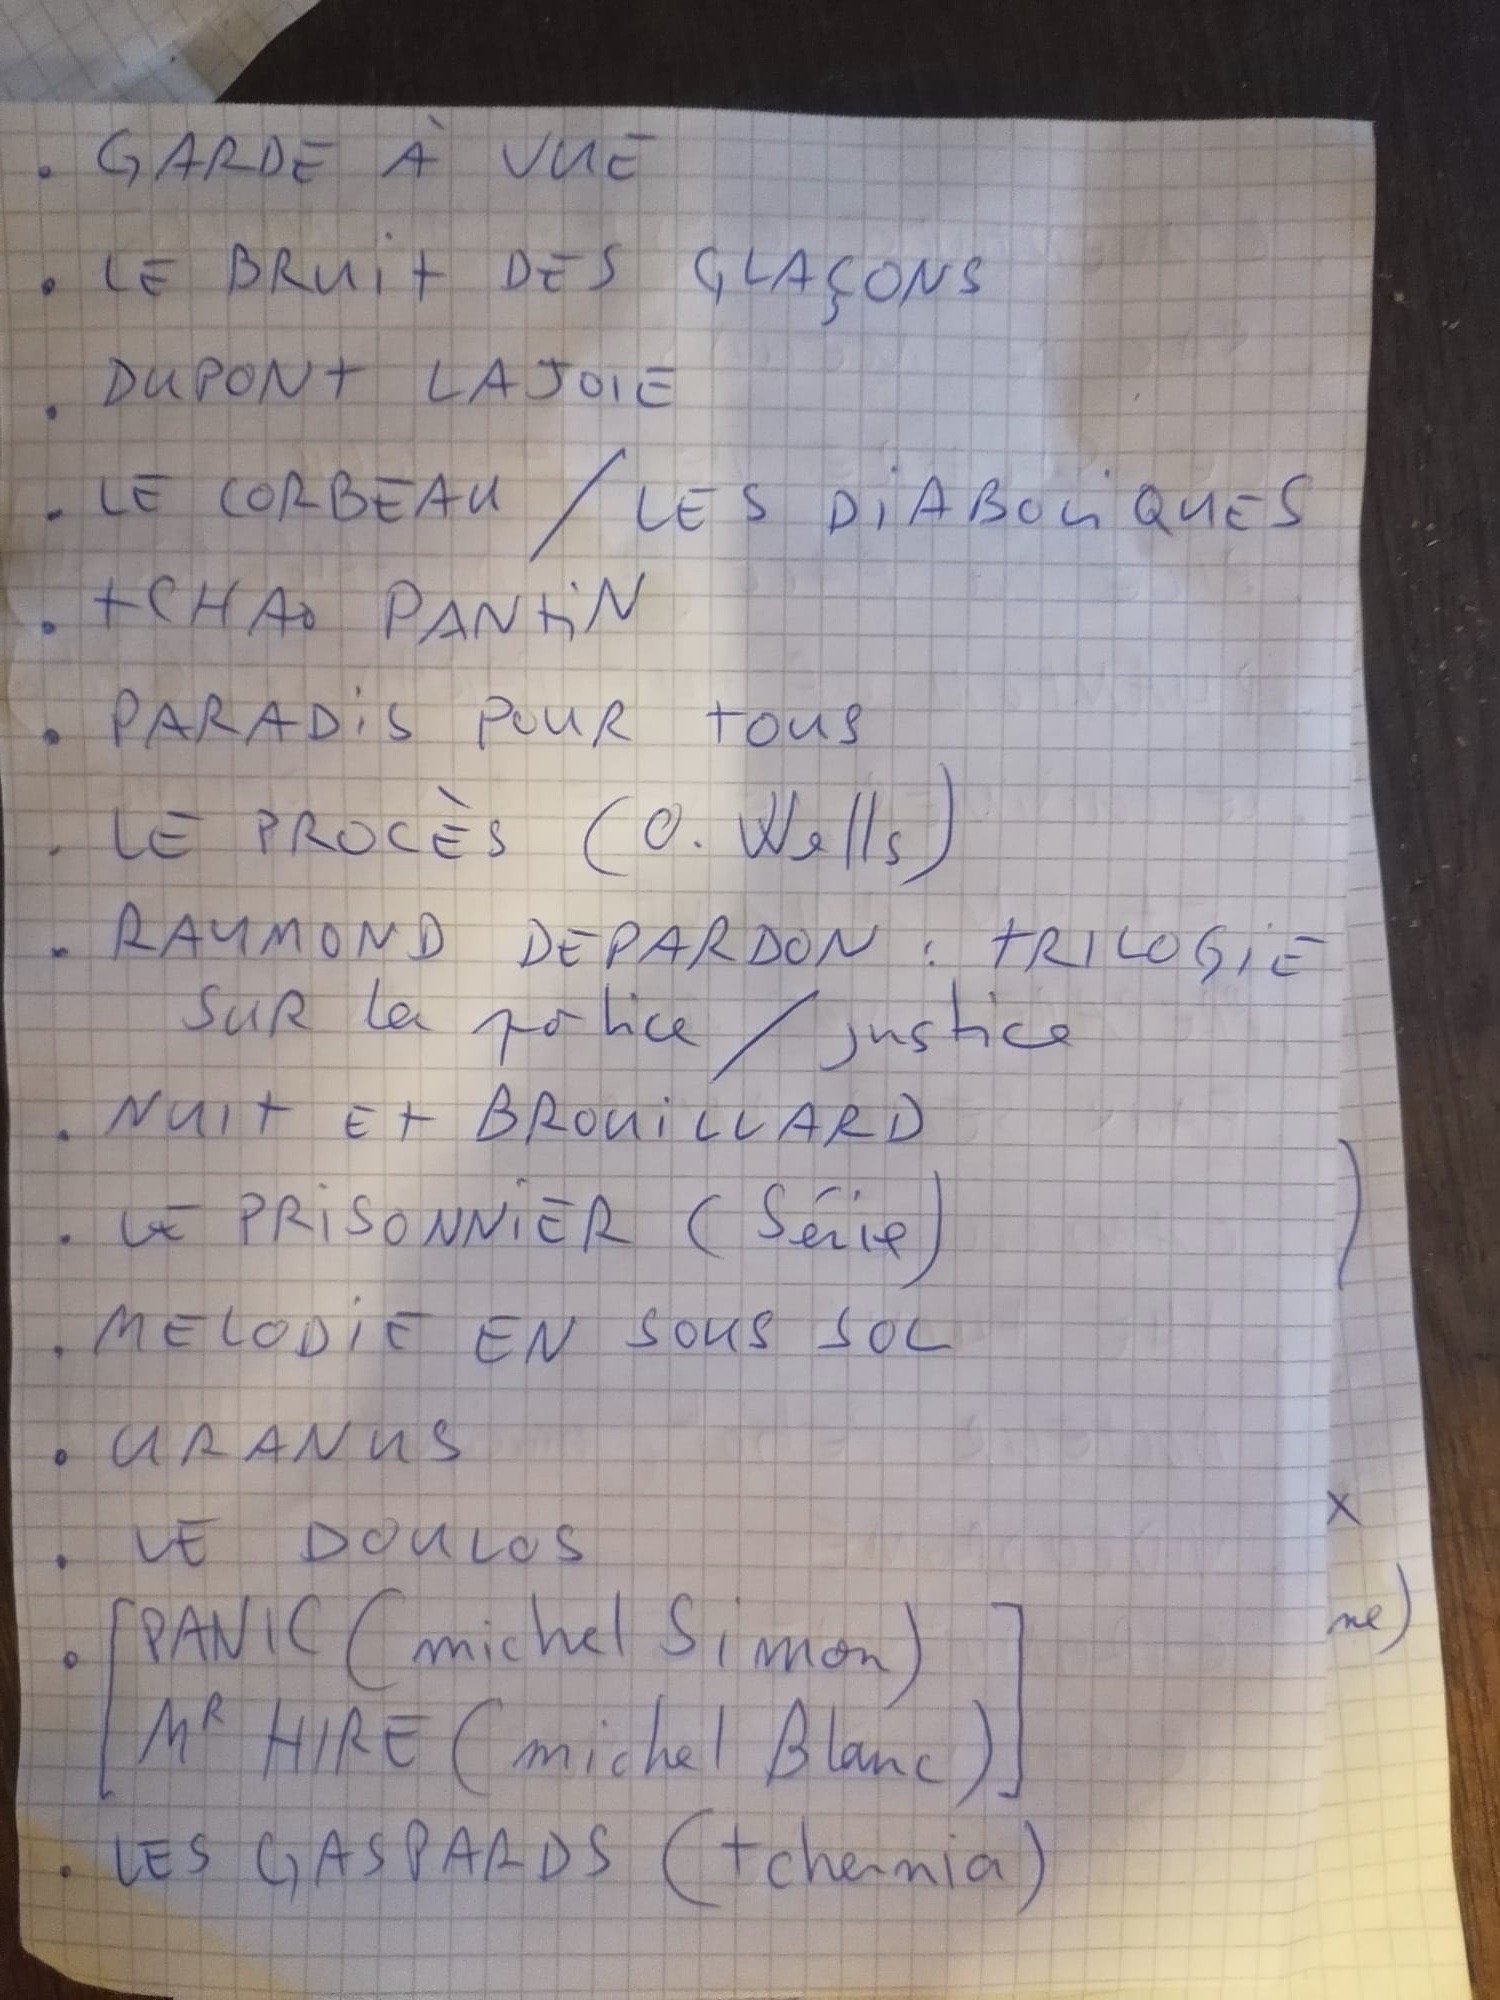 . GARDE À VUE
. LE BRUIT DES GLAÇONS
. DUPONT LAJOIE
. LE CORBEAU / LES DIABOLIQUES
. TCHAO PANTIN
. PARADIS POUR TOUS
. LE PROCÈS (O. Wells)
. RAYMOND DEPARDON : TRILOGIE
SUR la police / justice
. NUIT ET BROUILLARD
. LE PRISONNIER (Série)
. MELODIE EN SOUS SOL
. URANUS
. LE DOULOS
x
. [PANIC (michel Simon)
ne)
MR HIRE (michel Blanc)]
. LES GASPARDS (tchernia)